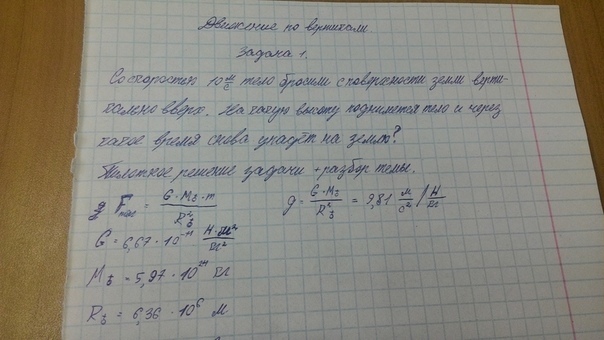 Движение по вертикали.
Задача 1.
Со скоростью 10 м/с тело бросили с поверхности земли верти-
кально вверх. На какую высоту поднимется тело и через
какое время снова упадёт на землю?
решение задачи + разбор темы.
F = G · M₃ · m / R₃² g = G · M₃ / R₃² = 9,81 м/с² / Н/кг
G = 6,67 · 10⁻¹¹ Н · м² / кг²
M₃ = 5,97 · 10²⁴ кг
R₃ = 6,36 · 10⁶ м